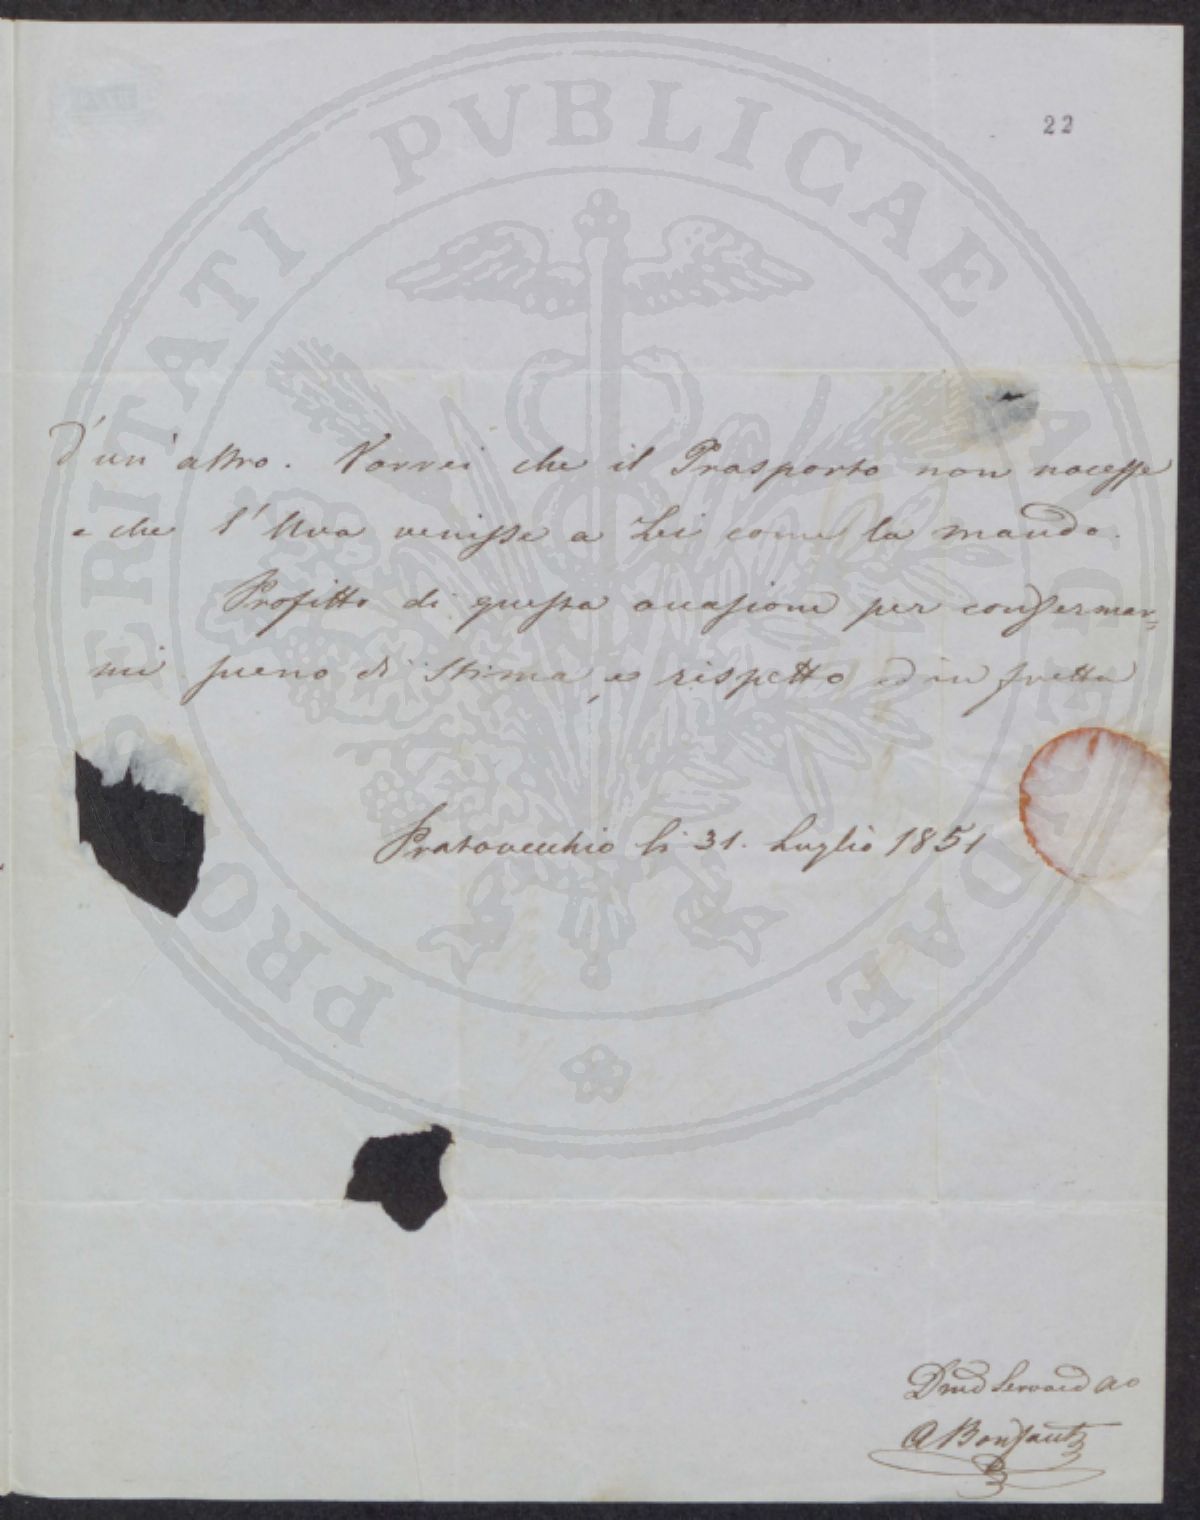 PROSPERITATI PVBLICAE AVGENDAE
22
d'un'altro. Vorrei che il Trasporto non nocesse
e che l'Uva venisse a Lei come la mando.
Profitto di questa occasione per confermar=
mi pieno di stima, e rispetto ed in fretta
Pratovecchio li 31. Luglio 1851
Servo
A Bonfanti